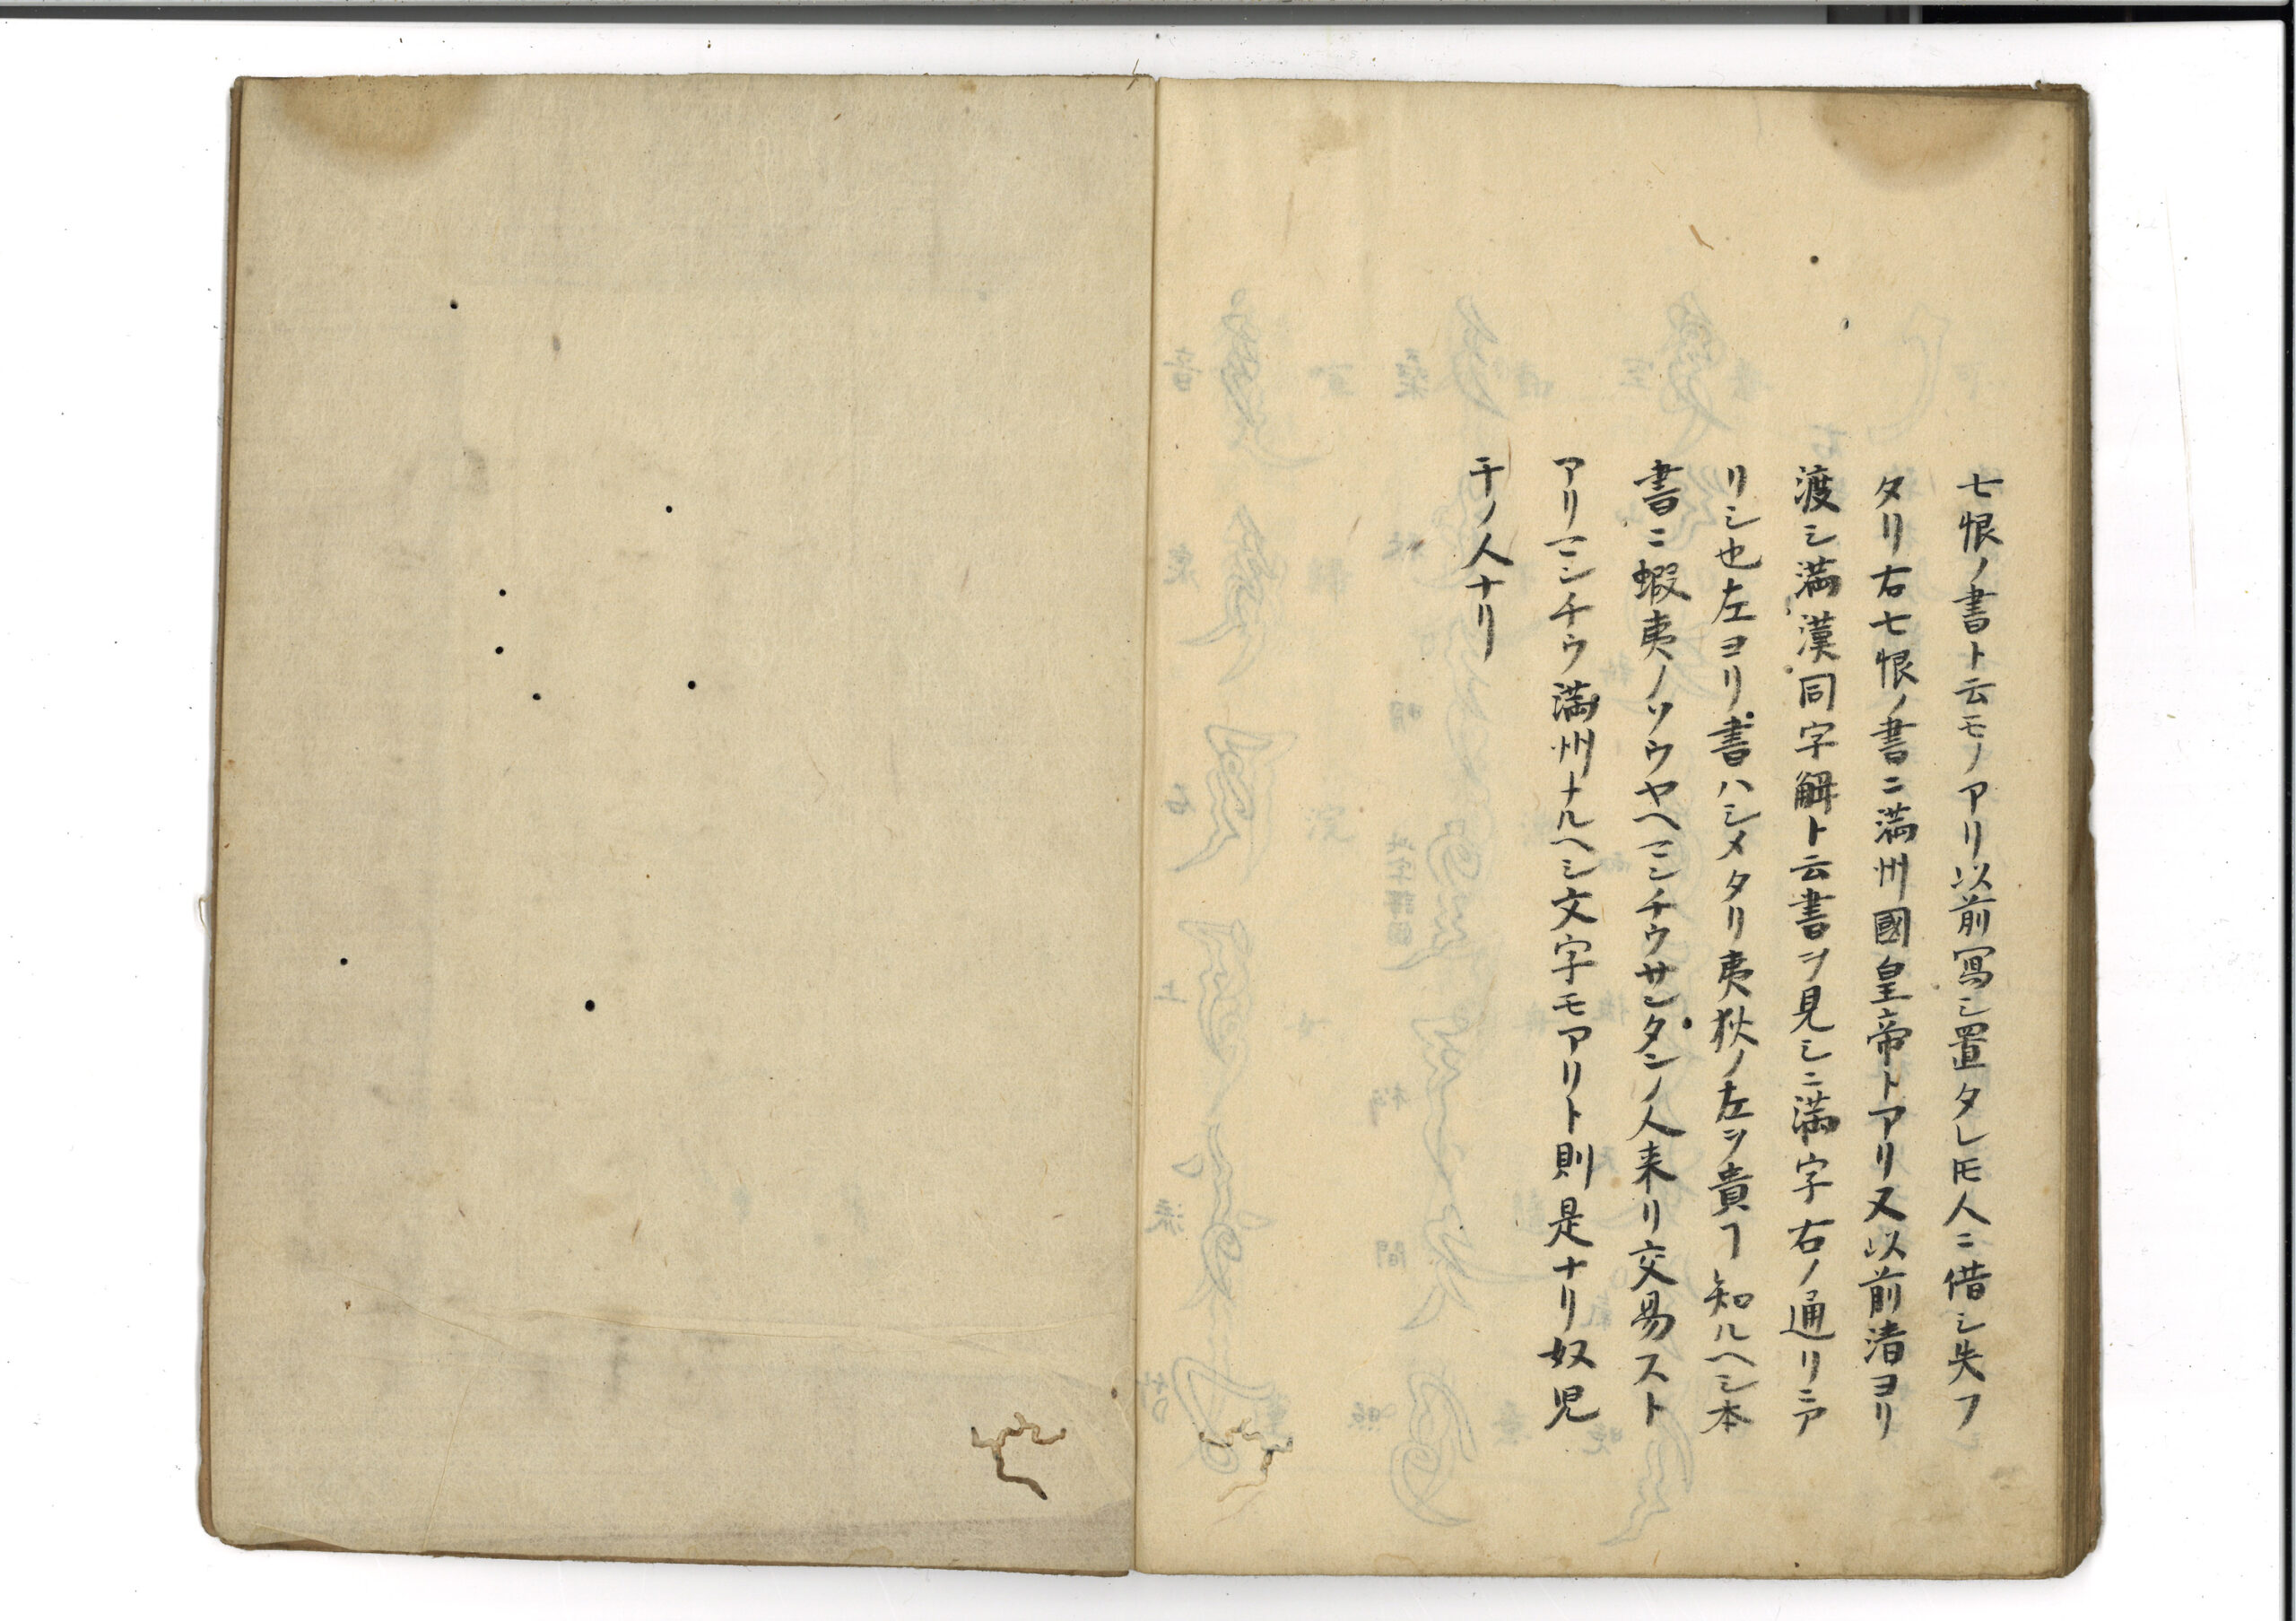 七恨ノ書ト云モノアリ以前寫シ置タレ𪜈人ニ借シ失フ
タリ右七恨ノ書ニ満州國皇帝トアリ又以前清ヨリ
渡シ満漢同字解ト云書ヲ見シニ満字右ノ通リニア
リシ也左ヨリ書ハシメタリ夷狄ノ左ヲ貴フ知ルヘシ本
書ニ蝦夷ノソウヤヘマンチウサンタンノ人来リ交易スト
アリマンチウ満州ナルヘシ文字モアリト則是ナリ奴児
干ノ人ナリ